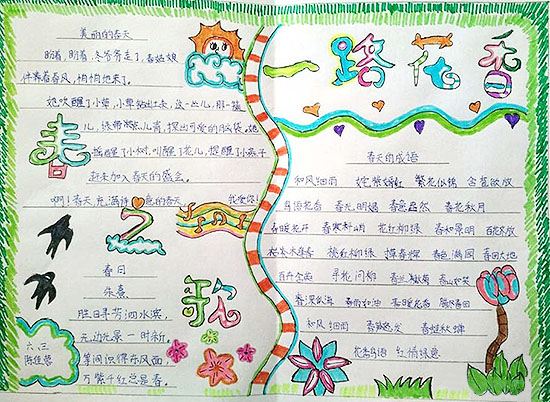 美丽的春天
盼着,盼着,冬爷爷走了,春姑娘
伴着春风,悄悄地来了。
她吹醒了小草,小草钻出土来,这一丛儿,那一簇
儿,绿带点儿青,探出可爱的脑袋。她
摇醒了小树,叫醒了花儿,提醒了小燕子
赶来加入春天的盛会。
啊!春天,充满诗意的春天,我爱你!
春之歌
春日
朱熹
胜日寻芳泗水滨,
无边光景一时新。
等闲识得东风面,
万紫千红总是春。
六、三
一路花香
春天的成语
和风细雨 姹紫嫣红 繁花似锦 含苞欲放
鸟语花香 春光明媚 春意盎然 春花秋月
春暖花开 春寒料峭 花红柳绿 春和景明 百花齐放
枯木逢春 桃红柳绿 春色满园 春回大地
百卉含英 寻花问柳 春山如笑
春深似海 春雨如油 春暖花香
和风细雨 春蛙秋蝉
花香鸟语 红情绿意